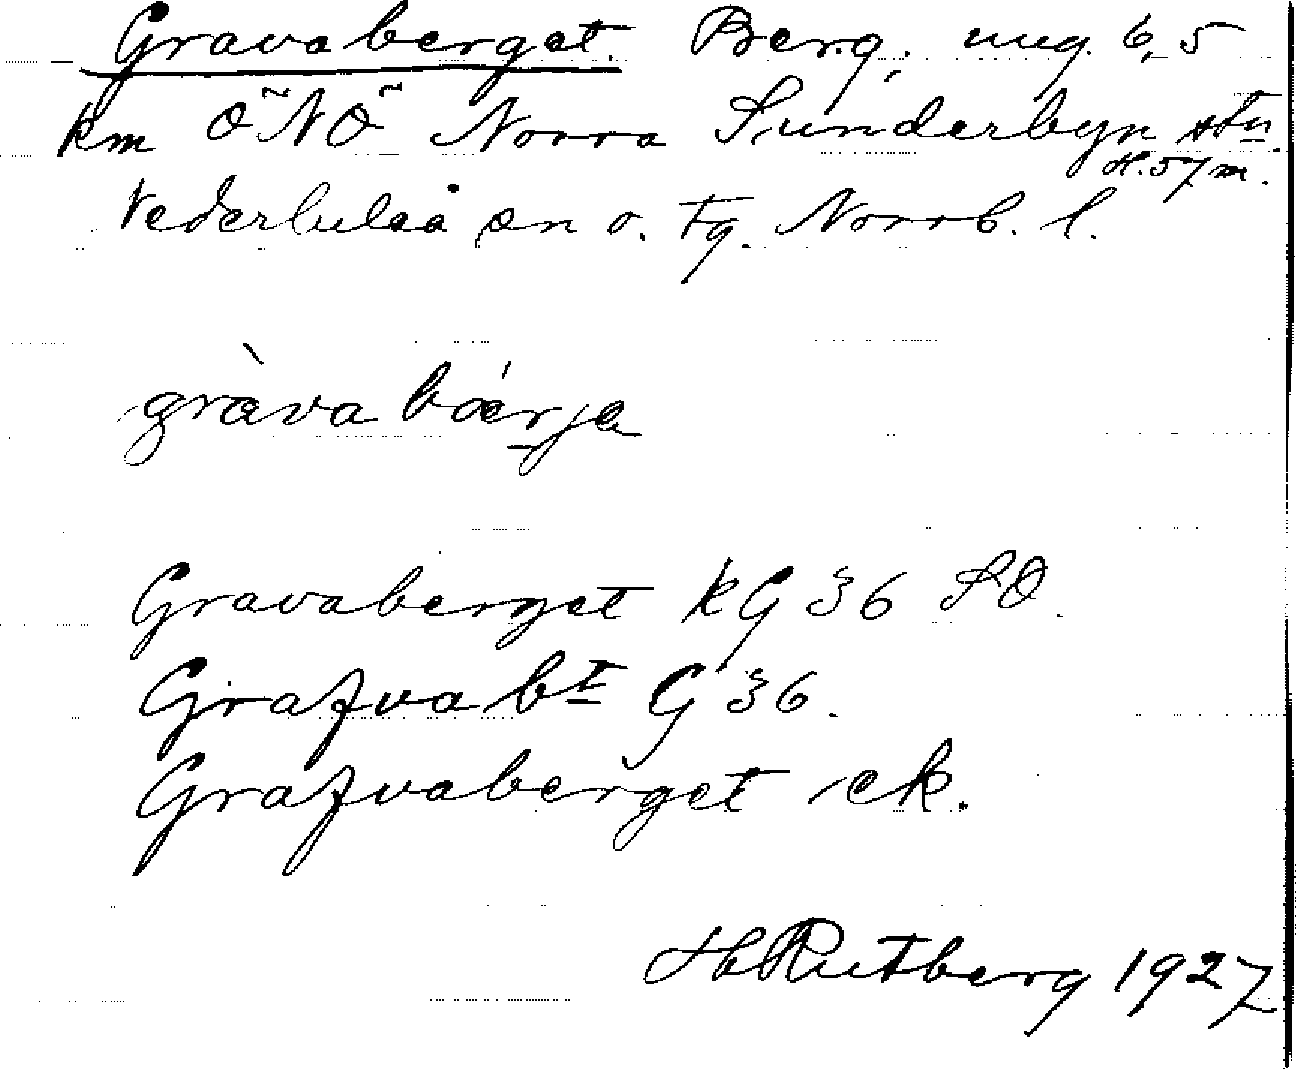 Gravaberget. Berg, ung. 6,5
km ÖNÖ Norra Sunderbyn stn.
H. 57 m.
Nederluleå sn o. tg. Norrb. l.
gràva bǽrja
Gravaberget KG 36 SO.
Grafva bt G 36.
Grafvaberget ek.
H Rutberg 1927